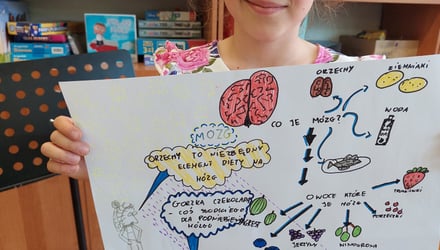 ORZECHY
ZIEMNIAKI
MÓZG
CO JE
MÓZG?
WODA
ORZECHY TO NIEZBĘDNY
ELEMENT DIETY NA
MÓZG
GORZKA CZEKOLADA
COŚ
DLA
OWOCE KTÓRE
JE MÓZG
TRUSKAWKI
AGREST
JEŻYNY
WINOGRONA